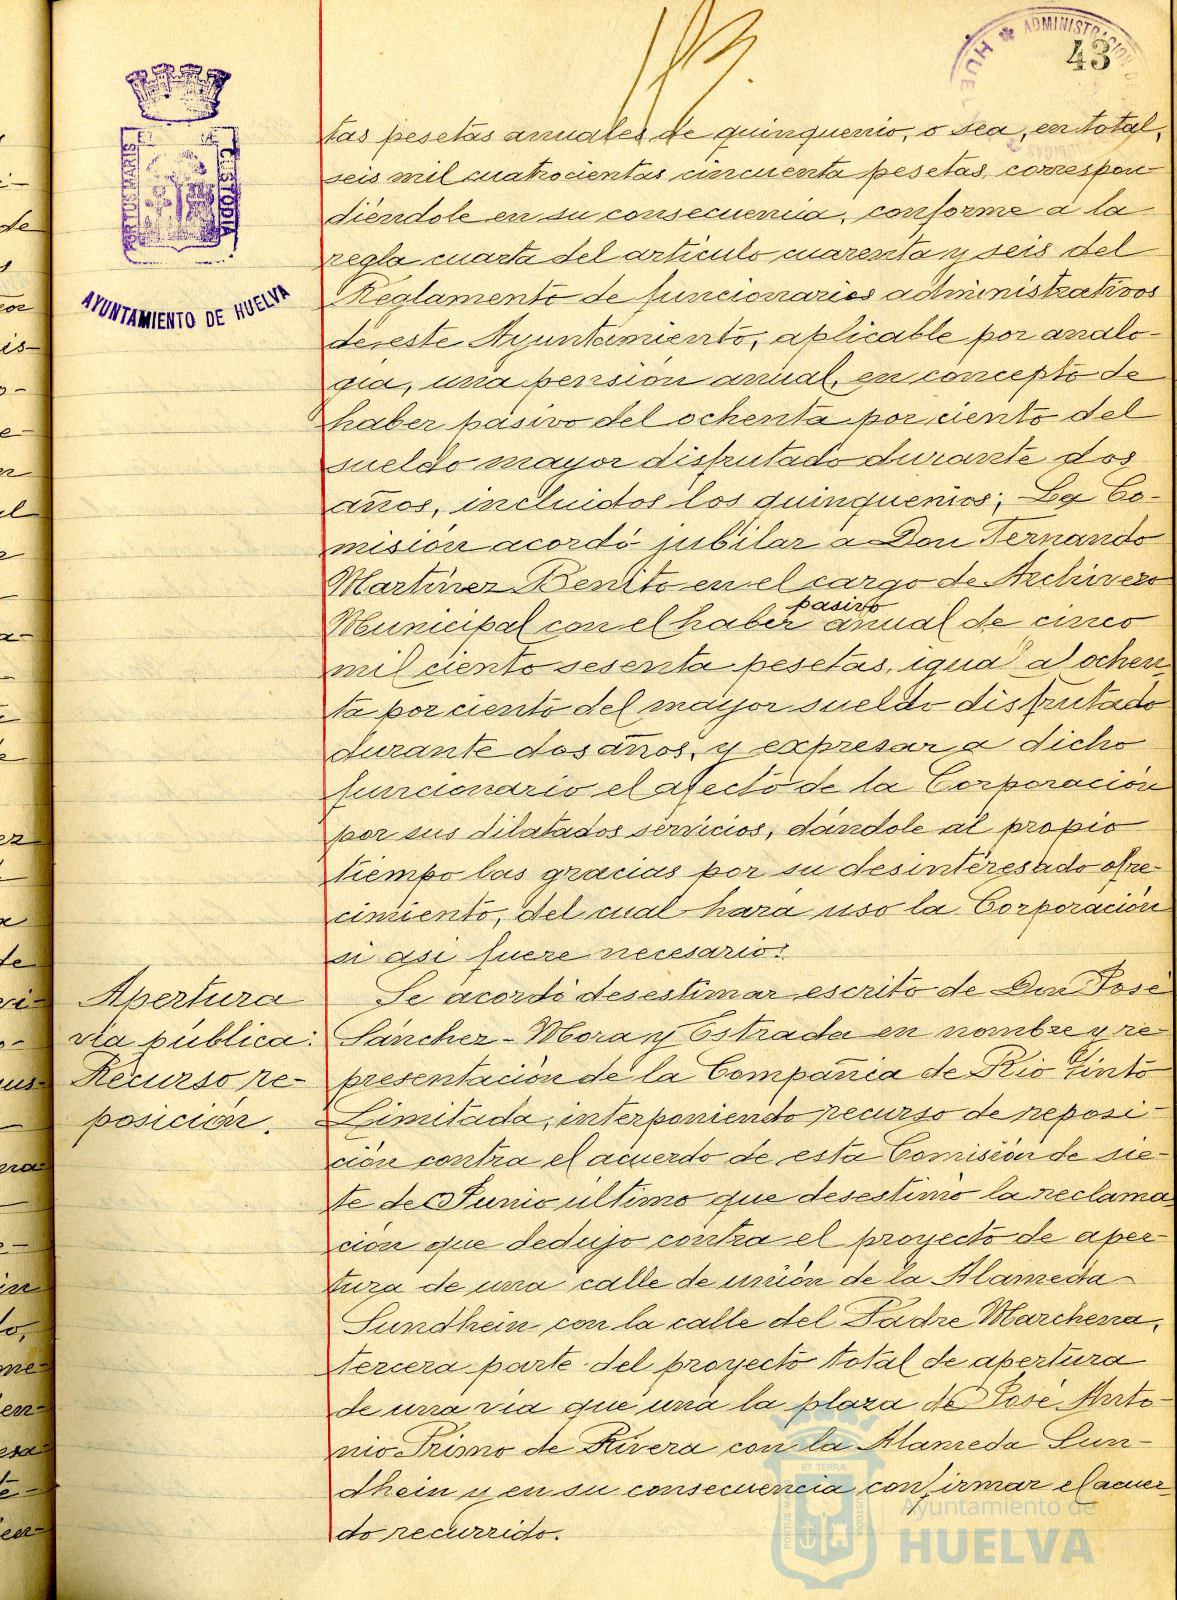 113.
ADMINISTRACION
HUEL
43
PORTUS MARIS
CUSTODIA
AYUNTAMIENTO DE HUELVA
tas pesetas anuales de quinquenio, o sea, en total,
seis mil cuatrocientas cincuenta pesetas, correspon-
diéndole en su consecuencia, conforme a la
regla cuarta del artículo cuarenta y seis del
Reglamento de funcionarios administrativos
de este Ayuntamiento, aplicable por analo-
gía, una pensión anual, en concepto de
haber pasivo del ochenta por ciento del
sueldo mayor disfrutado durante dos
años, incluidos los quinquenios; La Co-
misión acordó jubilar a Don Fernando
Martínez Benito en el cargo de Archivero
Municipal con el haber pasivo anual de cinco
mil ciento sesenta pesetas, igual al ochen-
ta por ciento del mayor sueldo disfrutado
durante dos años, y expresar a dicho
funcionario el afecto de la Corporación
por sus dilatados servicios, dándole al propio
tiempo las gracias por su desinteresado ofre-
cimiento, del cual hará uso la Corporación
si así fuere necesario.
Apertura
vía pública:
Recurso re-
posición.
Se acordó desestimar escrito de Don José
Sánchez-Mora y Estrada en nombre y re-
presentación de la Compañía de Río Tinto
Limitada, interponiendo recurso de reposi-
ción contra el acuerdo de esta Comisión de sie-
te de Junio último que desestimó la reclama
ción que dedujo contra el proyecto de aper-
tura de una calle de unión de la Alameda
Sundhein con la calle del Padre Marchena,
tercera parte del proyecto total de apertura
de una vía que una la plaza de José Anto-
nio Primo de Rivera con la Alameda Sun-
dhein y en su consecuencia confirmar el acuer-
do recurrido.
Ayuntamiento de
HUELVA